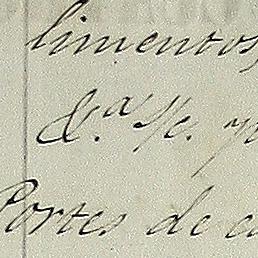 limentos,
&.ª S/c.
Portes de